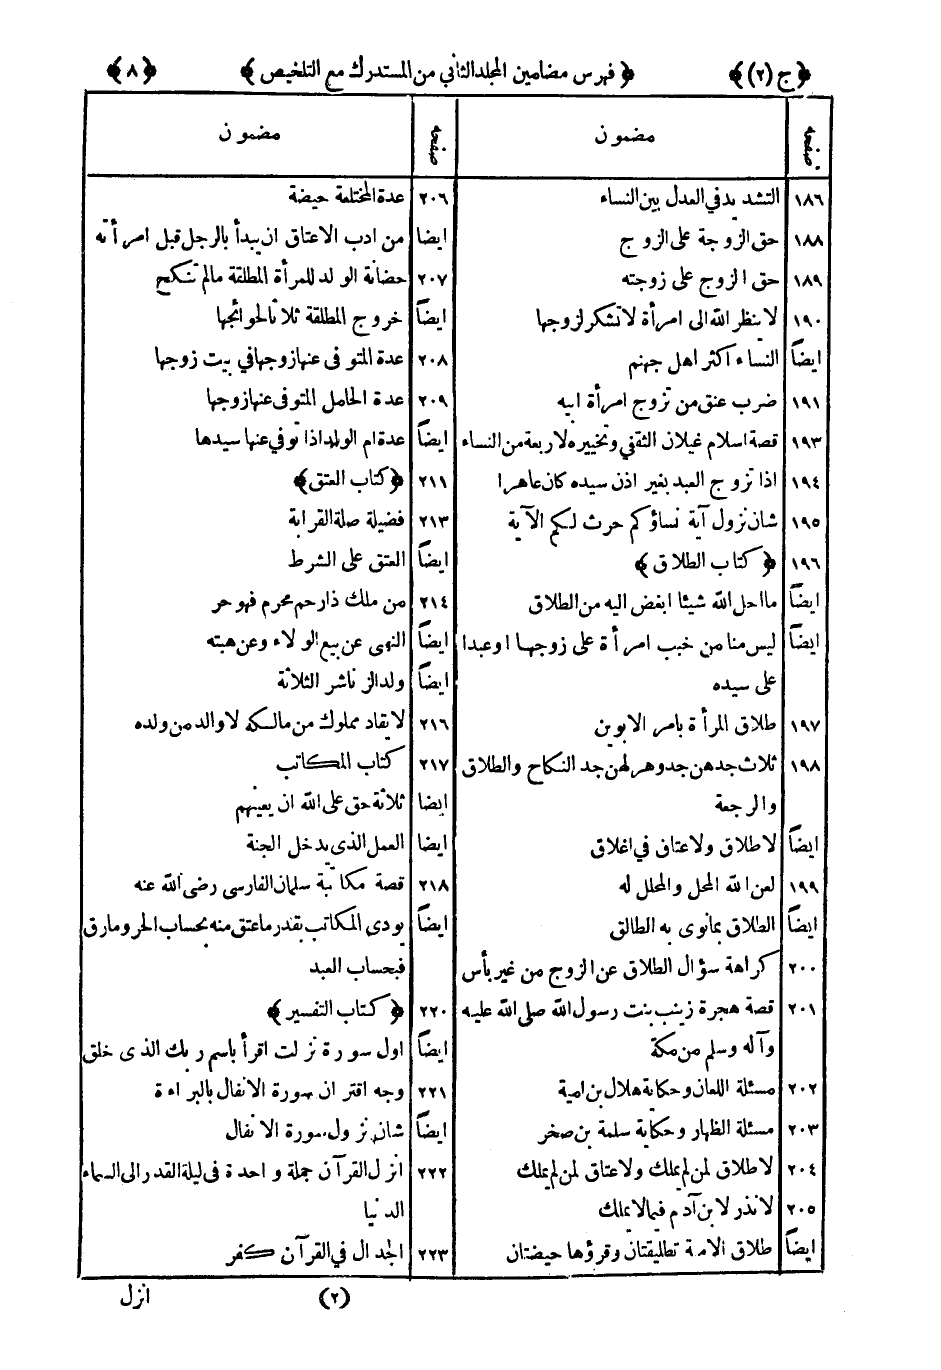 ﴿ ج (٢) ﴾ ﴿ فهرس مضامين المجلد الثاني من المستدرك مع التلخيص ﴾ ﴿ ٨ ﴾
صفحه مضمون
١٨٦ التشديد في العدل بين النساء
١٨٨ حق الزوجة على الزوج
١٨٩ حق الزوج على زوجته
١٩٠ لا ينظر الله الى امرأة لا تشكر لزوجها
ايضاً النساء اكثر اهل جهنم
١٩١ ضرب عنق من تزوج امرأة ابيه
١٩٣ قصة اسلام غيلان الثقفي وتخييره لاربعة من النساء
١٩٤ اذا تزوج العبد بغير اذن سيده كان عاهرا
١٩٥ شان نزول آية نساؤكم حرث لكم الآية
١٩٦ ﴿ كتاب الطلاق ﴾
ايضاً ما احل الله شيئا ابغض اليه من الطلاق
ايضاً ليس منا من خبب امرأة على زوجها او عبدا
على سيده
١٩٧ طلاق المرأة بامر الابوين
١٩٨ ثلاث جدهن جد وهزلهن جد النكاح والطلاق
والرجعة
ايضاً لا طلاق ولا عتاق في اغلاق
١٩٩ لعن الله المحل والمحلل له
ايضاً الطلاق بمانوى به الطالق
٢٠٠ كراهة سؤال الطلاق عن الزوج من غير بأس
٢٠١ قصة هجرة زينب بنت رسول الله صلى الله عليه
وآله وسلم من مكة
٢٠٢ مسئلة اللعان وحكاية هلال بن امية
٢٠٣ مسئلة الظهار وحكاية سلمة بن صخر
٢٠٤ لا طلاق لمن لم يملك ولا عتاق لمن لم يملك
٢٠٥ لا نذر لابن آدم فيما لا يملك
ايضاً طلاق الامة تطليقتان وقرؤها حيضتان
صفحه مضمون
٢٠٦ عدة المختلعة حيضة
ايضا من ادب الاعتاق ان يبدأ بالرجل قبل امرأته
٢٠٧ حضانة الولد للمرأة المطلقة مالم تنكح
ايضاً خروج المطلقة ثلاثا لحوائجها
٢٠٨ عدة المتوفى عنها زوجها في بيت زوجها
٢٠٩ عدة الحامل المتوفى عنها زوجها
ايضاً عدة ام الولد اذا توفي عنها سيدها
٢١١ ﴿ كتاب العتق ﴾
٢١٣ فضيلة صلة القرابة
ايضاً العتق على الشرط
٢١٤ من ملك ذا رحم محرم فهو حر
ايضاً النهى عن بيع الولاء وعن هبته
ايضاً ولد الزنا شر الثلاثة
٢١٦ لا يقاد مملوك من مالكه لا والد من ولده
٢١٧ كتاب المكاتب
ايضا ثلاثة حق على الله ان يعينهم
ايضا العمل الذى يدخل الجنة
٢١٨ قصة مكاتبة سلمان الفارسى رضى الله عنه
ايضاً يودى المكاتب بقدر ما عتق منه بحساب الحر ومارق
فبحساب العبد
٢٢٠ ﴿ كتاب التفسير ﴾
ايضاً اول سورة نزلت اقرأ باسم ربك الذى خلق
٢٢١ وجه اقتران سورة الانفال بالبراءة
ايضاً شان نزول سورة الانفال
٢٢٢ انزل القرآن جملة واحدة فى ليلة القدر الى السماء
الدنيا
٢٢٣ الجدال في القرآن كفر
(٢) انزل